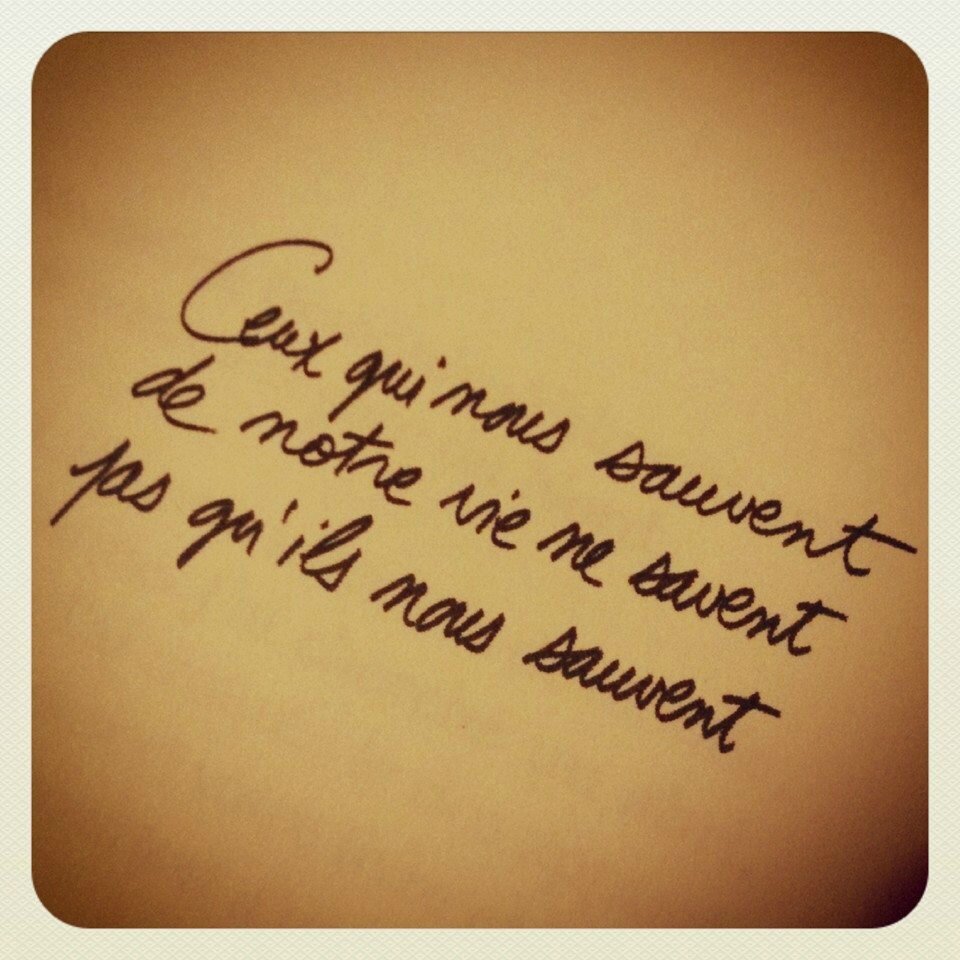 Ceux qui nous sauvent
de notre vie ne savent
pas qu'ils nous sauvent